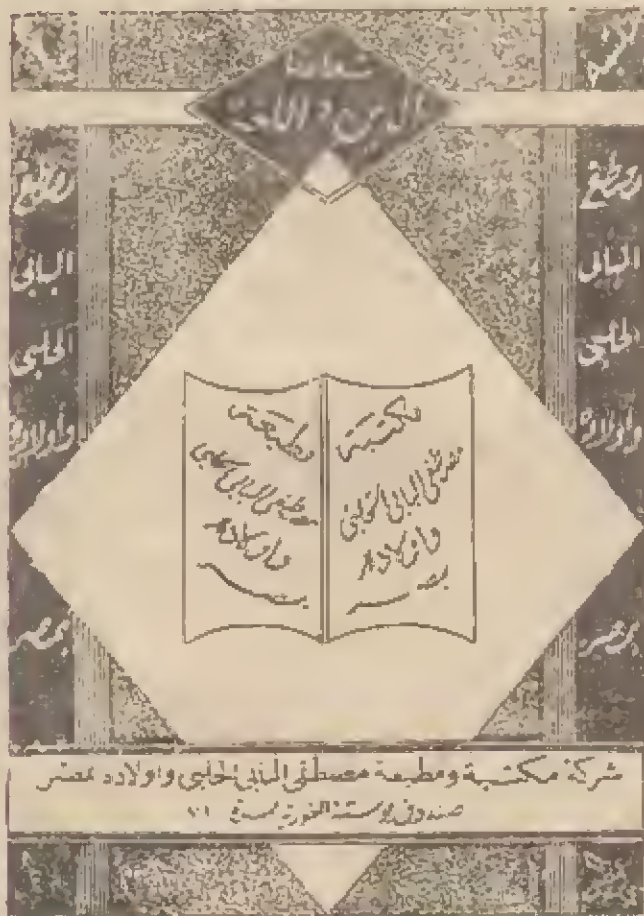 شعارنا
الدين واللغة
مكتبة
مصطفى
البابى
الحلبى
وأولاده
بمصر
مصطفى
البابى
الحلبى
وأولاده
بمصر
مكتبة
مصطفى البابى الحلبى
وأولاده
بمصر
مطبعة
مصطفى البابى الحلبى
وأولاده
بمصر
شركة مكتبة ومطبعة مصطفى البابى الحلبى وأولاده بمصر
صندوق بوستة الغورية ٧١